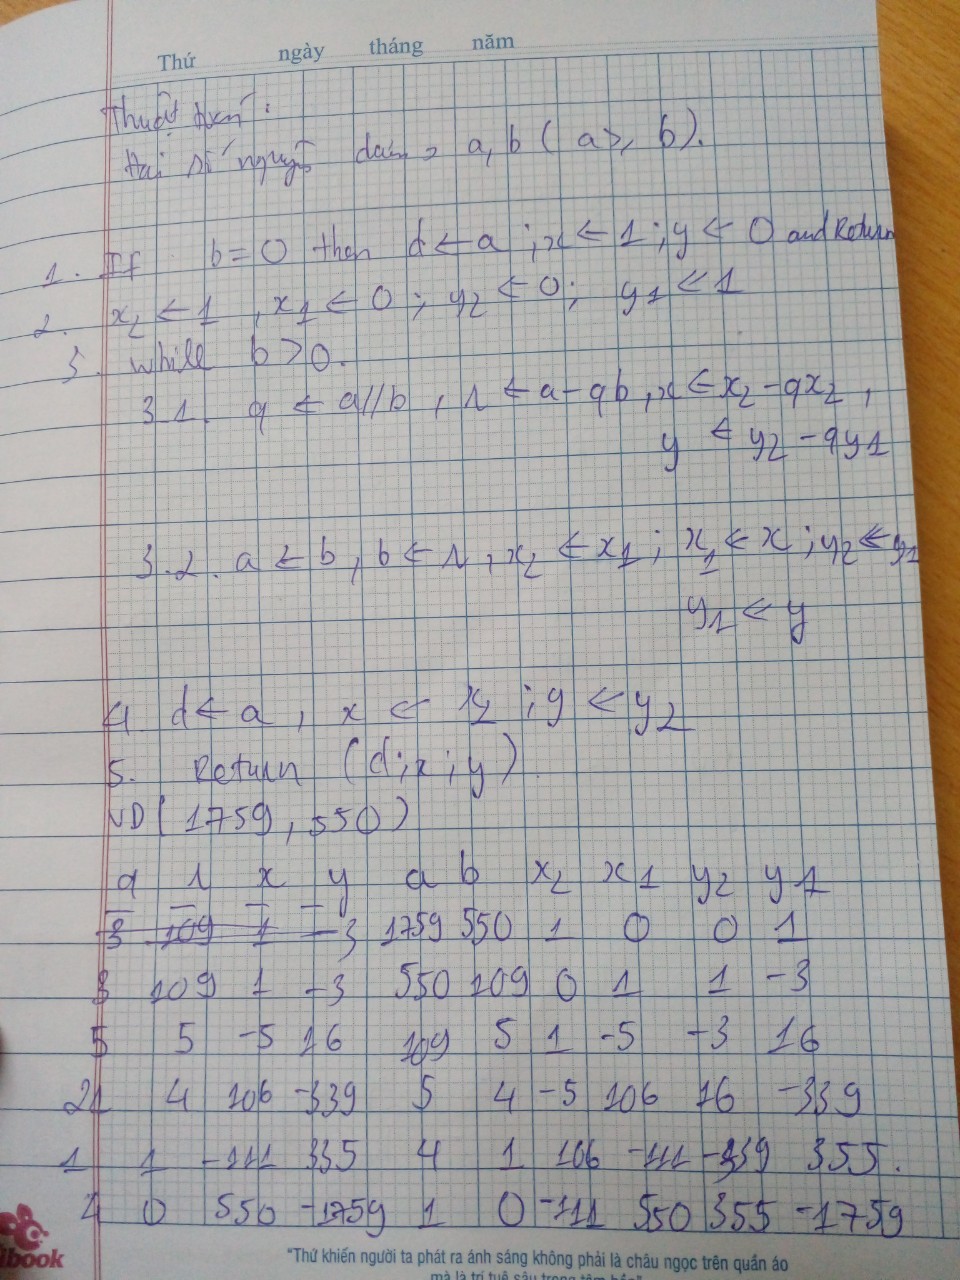 Thứ ngày tháng năm
Thuật toán :
Hai số nguyên dương a, b ( a ≥ b).
1. If b = 0 then d ← a ; x ← 1 ; y ← 0 and Return
2. x₂ ← 1 , x₁ ← 0 ; y₂ ← 0 ; y₁ ← 1
3. while b > 0.
3.1. q ← a//b , r ← a - qb , x ← x₂ - qx₂ ,
y ← y₂ - qy1
3.2. a ← b , b ← r , x₂ ← x₁ ; x₁ ← x ; y₂ ← y₁
y₁ ← y
4 d ← a , x ← x₂ ; y ← y₂
5. Return (d ; x ; y)
VD ( 1759 , 550 )
q r x y a b x₂ x1 y₂ y1
3 109 1 -3 1759 550 1 0 0 1
3 109 1 -3 550 109 0 1 1 -3
5 5 -5 16 109 5 1 -5 -3 16
21 4 106 -339 5 4 -5 106 16 -339
1 1 -111 335 4 1 106 -111 -339 355.
4 0 550 -1759 1 0 -111 550 355 -1759
ibook
"Thứ khiến người ta phát ra ánh sáng không phải là châu ngọc trên quần áo
mà là trí tuệ sâu trong tâm hồn"